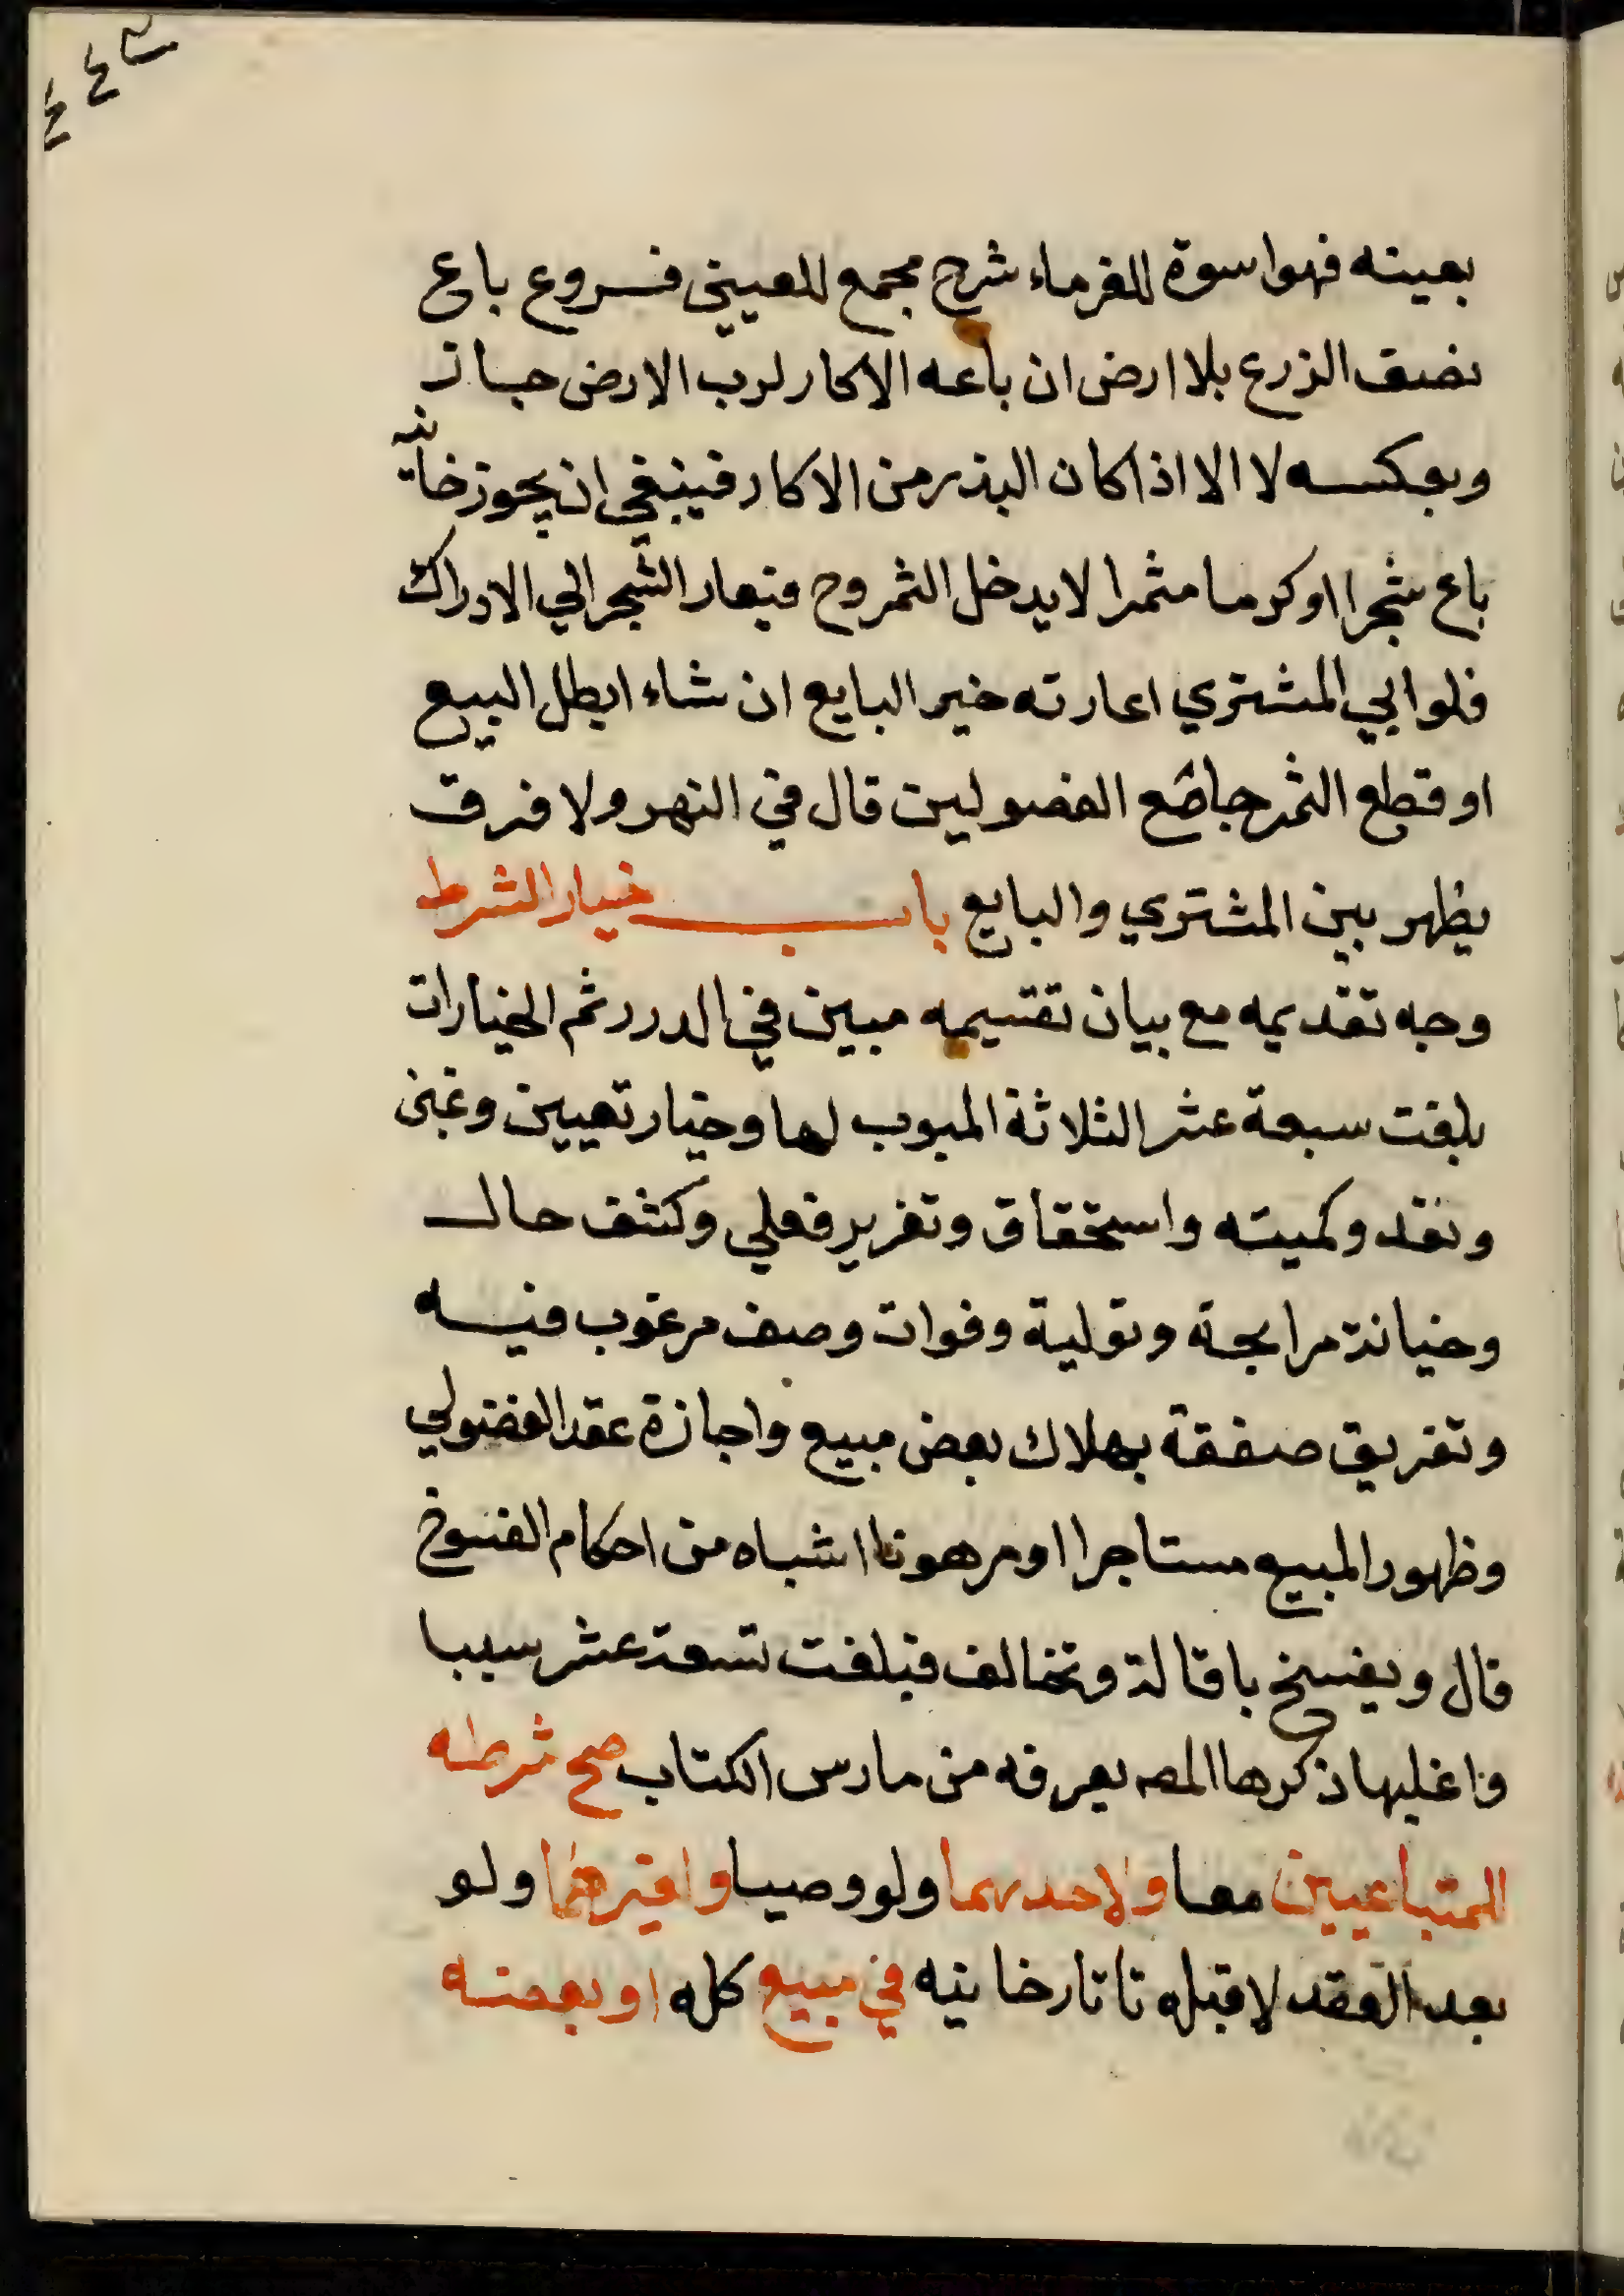 بعينه فهو اسوة للغرماء شرح مجمع للعيني فروع باع
نصف الزرع بلا ارض ان باعه الاكار لرب الارض جاز
وبعكسه لا الا اذا كان البذر من الاكار فينبغي ان يجوز خانية
باع شجرا او كرما مثمرا لا يدخل الثمر وح فيعار الشجر الي الادراك
فلو ابي المشتري اعارته خير البايع ان شاء ابطل البيع
او قطع الثمر جامع الفصولين قال في النهر ولا فرق
يظهر بين المشتري والبايع باب خيار الشرط
وجه تقديمه مع بيان تقسيمه مبين في الدرر ثم الخيارات
بلغت سبعة عشر الثلاثة المبوب لها وخيار تعيين وغبن
ونقد وكميته واستحقاق وتغرير فعلي وكشف حال
وخيانة مرابحة وتولية وفوات وصف مرغوب فيه
وتفريق صفقة بهلاك بعض مبيع واجازة عقد الفضولي
وظهور المبيع مستاجرا او مرهونا اشباه من احكام الفسوخ
قال ويفسخ باقالة وتخالف فبلغت تسعة عشر سببا
واغلبها ذكرها المصه يعرفه من مارس الكتاب صح شرطه
للمتبايعين معا ولاحدهما ولو وصيا ولغيرهما ولو
بعد العقد لا قبله تاتارخانيه في مبيع كله او بعضه